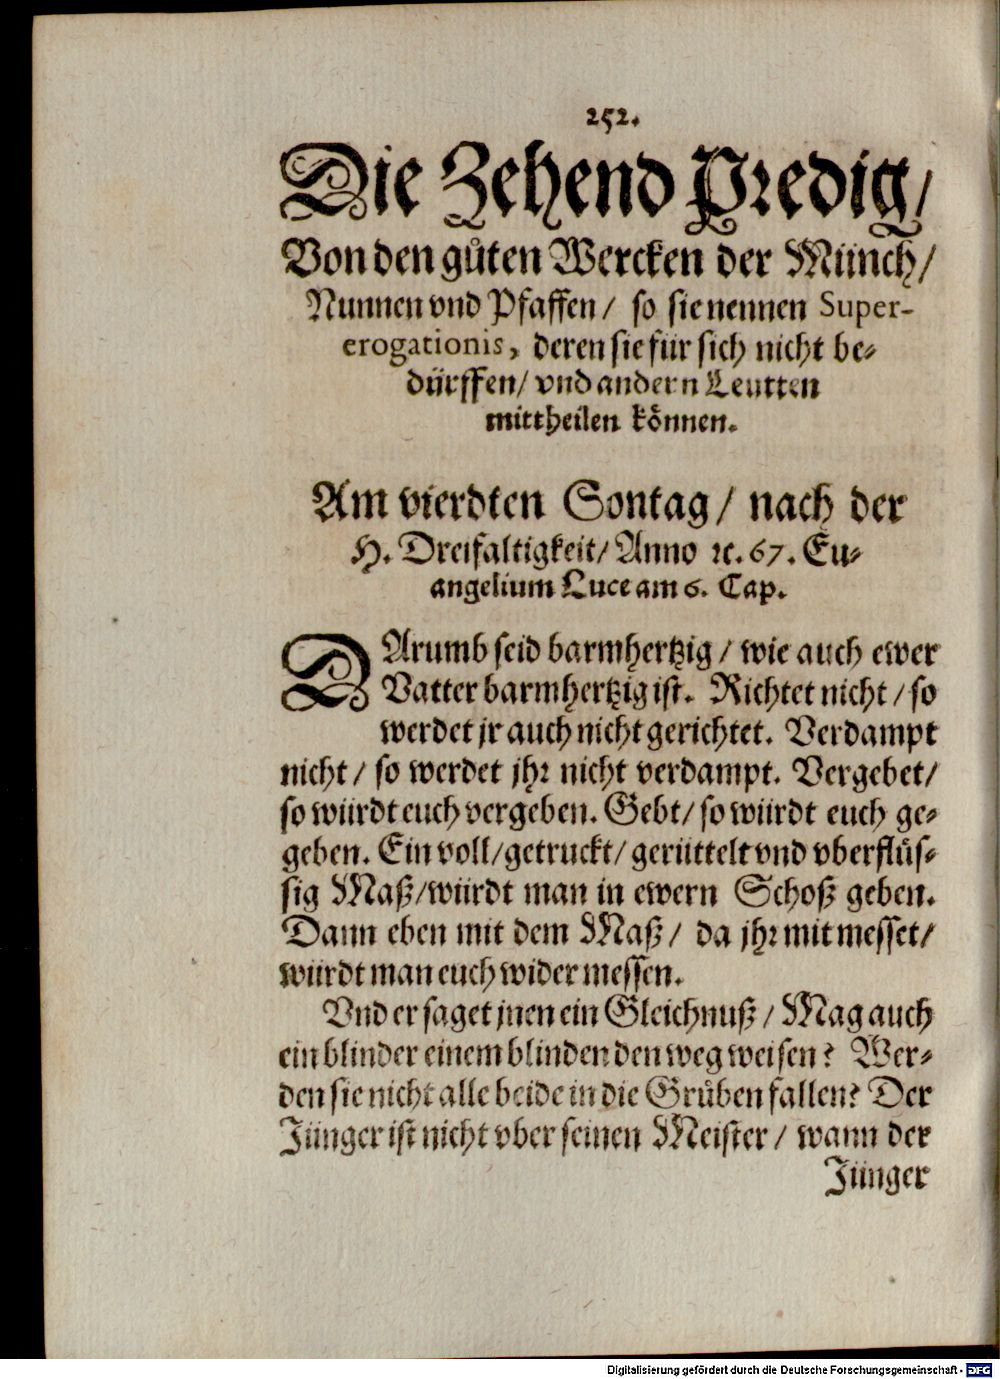 252.
Die Zehend Predig/
Von den gůten Wercken der Münch/
Nunnen vnd Pfaffen/ so sie nennen Super-
erogationis, deren sie für sich nicht be-
dürffen/ vnd andern Leutten
mittheilen können.
Am vierdten Sontag/ nach der
H. Dreifaltigkeit/ Anno ꝛc. 67. Eu-
angelium Luce am 6. Cap.
DArumb seid barmhertzig/ wie auch ewer
Vatter barmhertzig ist. Richtet nicht/ so
werdet jr auch nicht gerichtet. Verdampt
nicht/ so werdet jhr nicht verdampt. Vergebet/
so würdt euch vergeben. Gebt/ so würdt euch ge-
geben. Ein voll/ getruckt/ gerüttelt vnd vberflüs-
sig Maß/ würdt man in ewern Schoß geben.
Dann eben mit dem Maß/ da jhr mit messet/
würdt man euch wider messen.
Vnd er saget jnen ein Gleichnuß/ Mag auch
ein blinder einem blinden den weg weisen? Wer-
den sie nicht alle beide in die Grůben fallen? Der
Jünger ist nicht vber seinen Meister/ wann der
Jünger
Digitalisierung gefördert durch die Deutsche Forschungsgemeinschaft - DFG